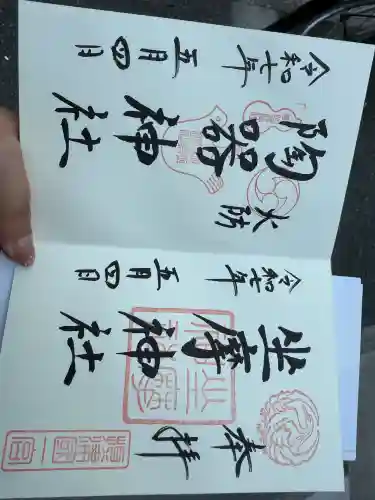 奉拝
坐摩神社
令和七年五月四日
摂津国一宮
火防
陶器神社
令和七年五月四日